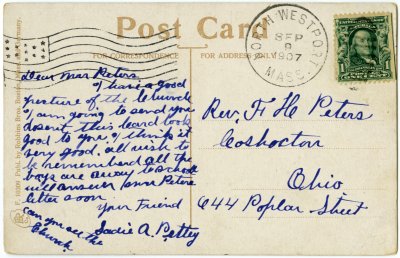 Post Card
FOR CORRESPONDENCE
FOR ADDRESS ONLY
NORTH WESTPORT
SEP
8
1907
MASS.
Dear Mrs Peters
I have a good
picture of the Church
I am going to send you
doesent this Card look
good to you, I think it
very good. all wish to
be remembered all the
boys are away to School
will answer Peters
letter soon.
Your Friend
Sadie A. Pettey
can you see the
Church
Rev. F H Peters
Coshocton
Ohio
644 Poplar Street